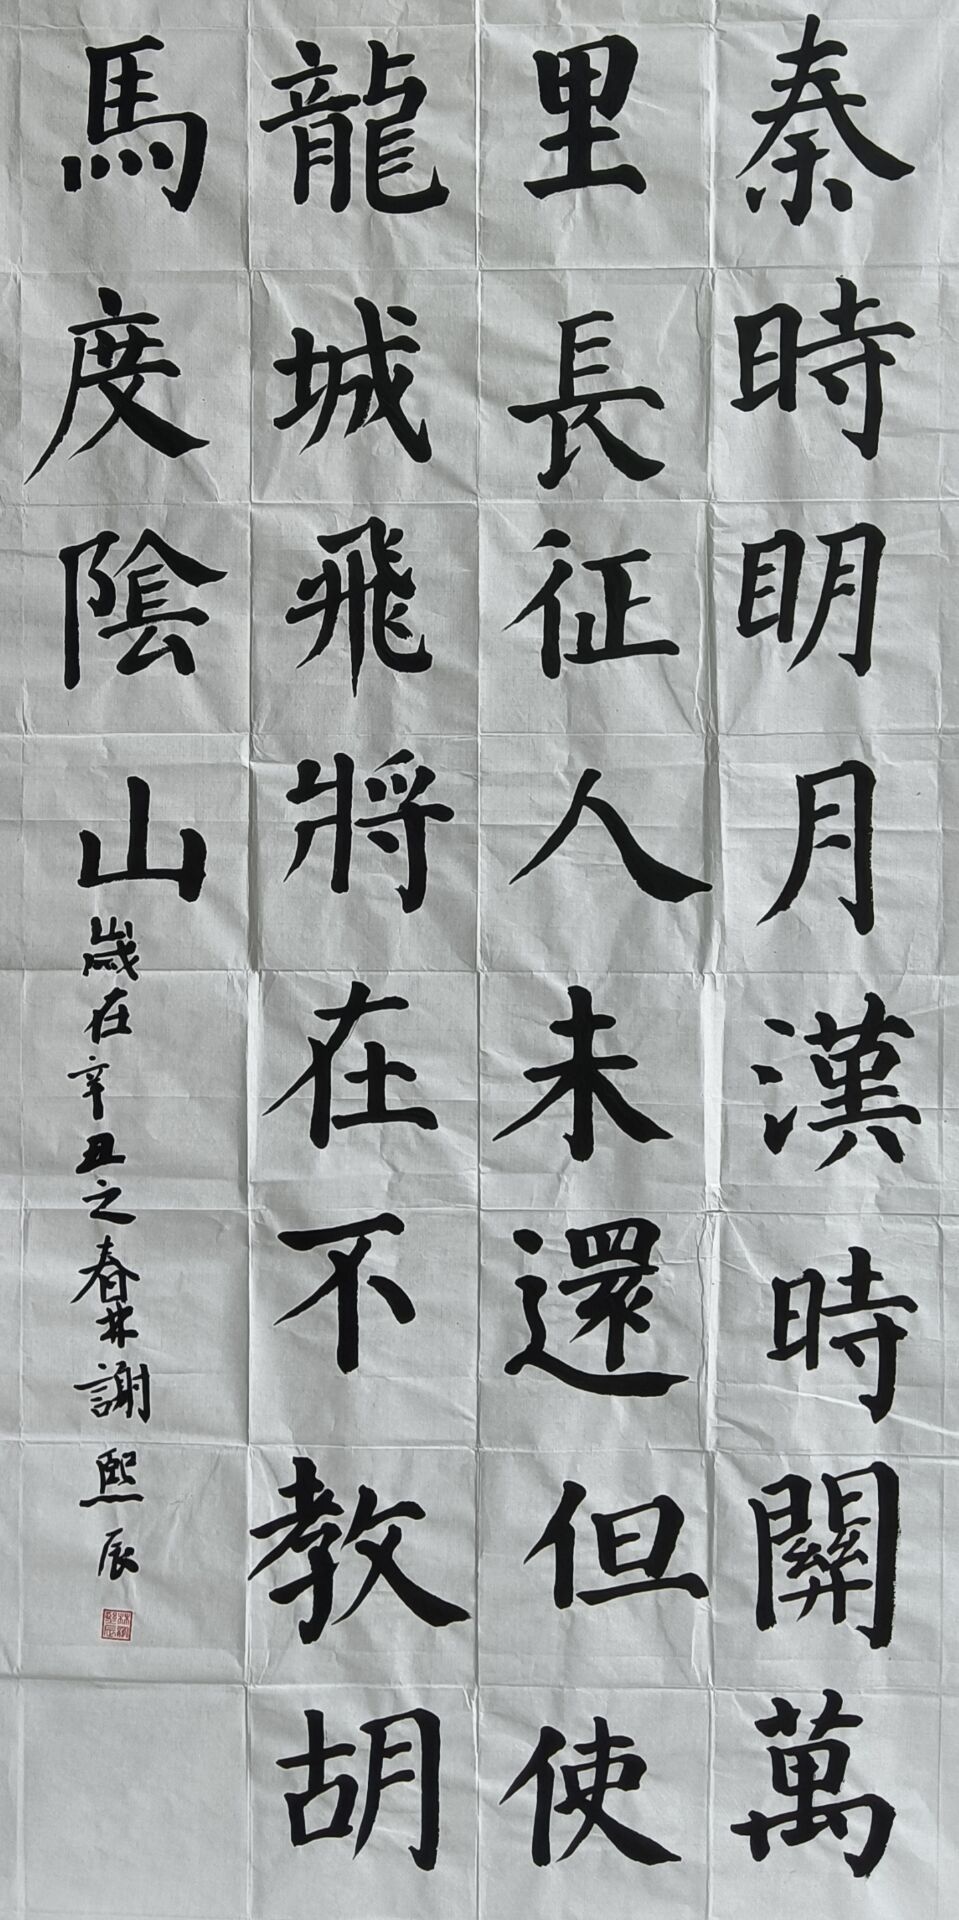 秦時明月漢時關萬
里長征人未還但使
龍城飛將在不教胡
馬度陰山
歲在辛丑之春林謝熙辰